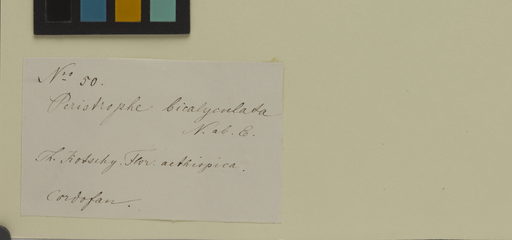 Nro 50.
Peristrophe bicalyculata
N. ab. E.
Th. Kotschy. Flor. aethiopica.
Cordofan.